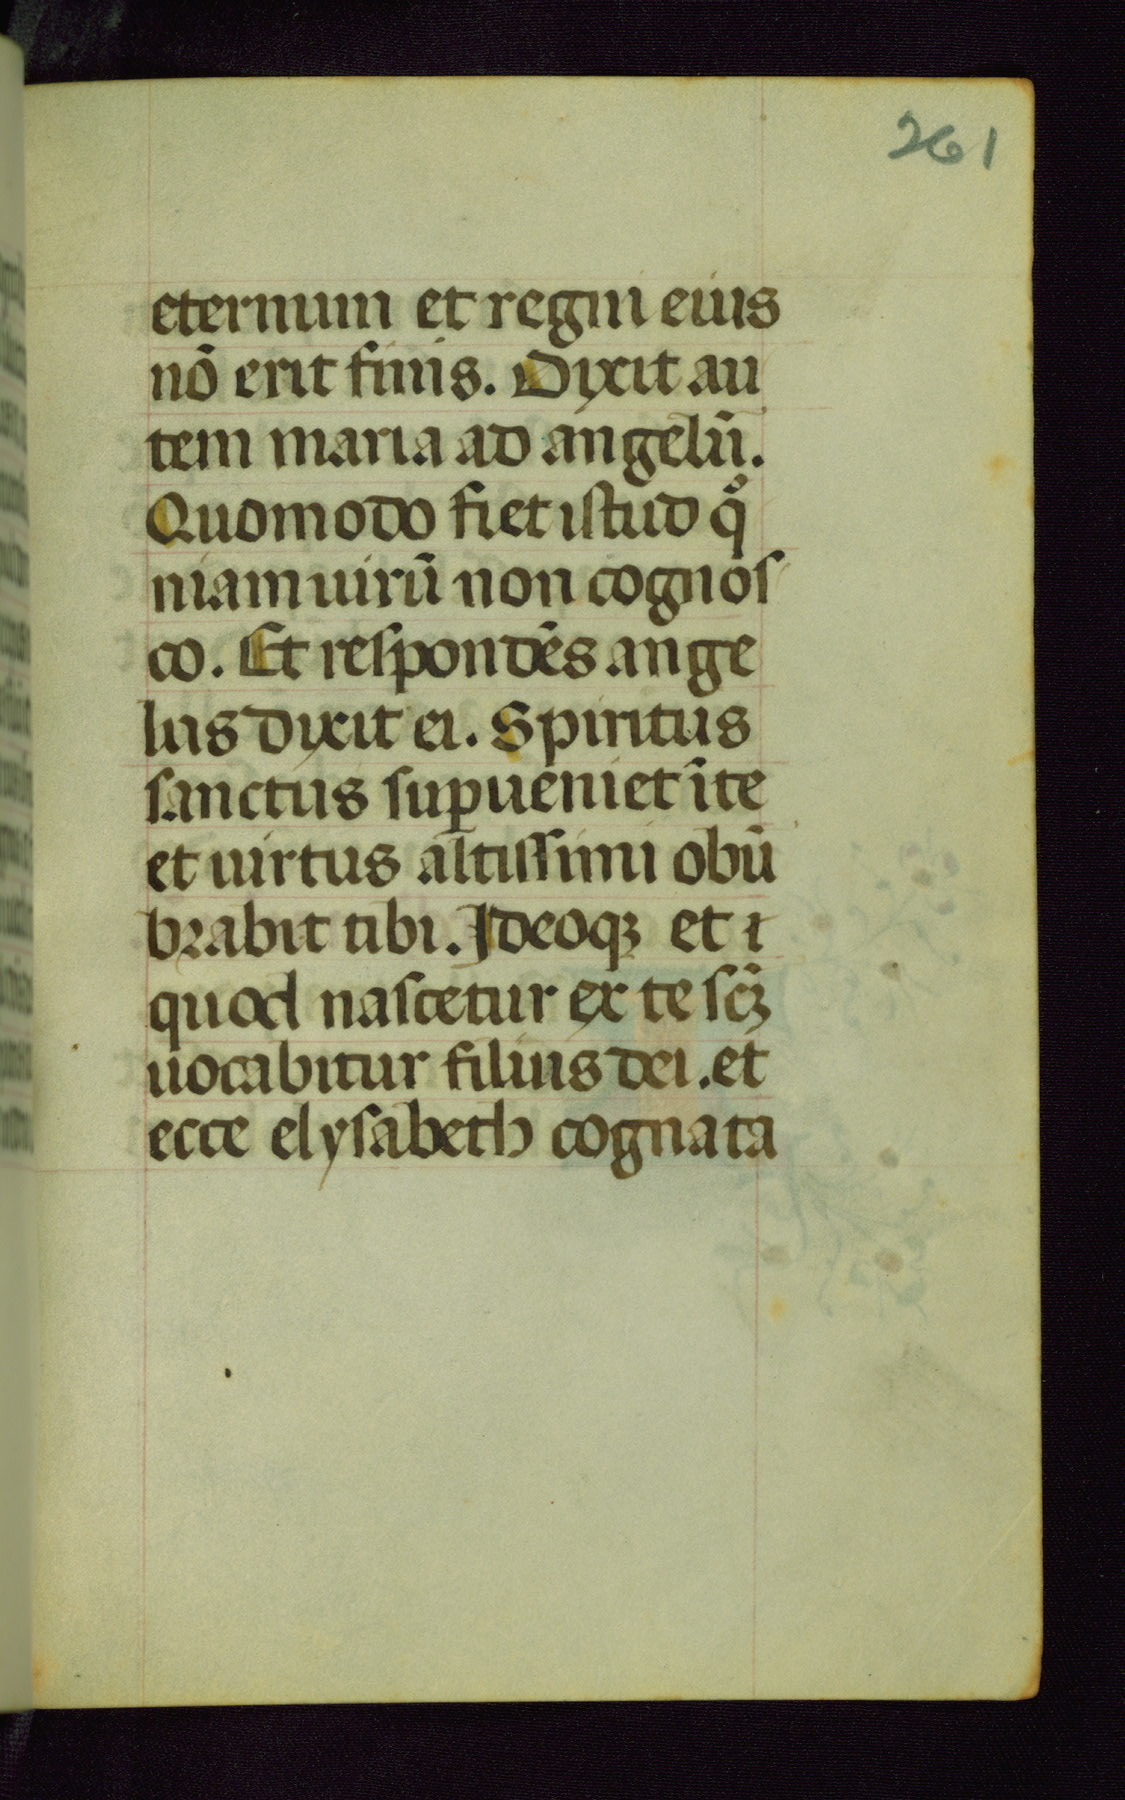 261
eternum et regni eius
nō erit finis. Dixit au
tem maria ad angelū.
Quomodo fiet istud qͦ
niam uirū non cognos
co. Et respondēs ange
lus dixit ei. Spiritus
sanctus suꝑueniet īte
et uirtus altissimi obū
brabit tibi. Ideoqꝫ et ⁊
quod nascetur ex te scꝫ̄
uocabitur filius dei. et
ecce elysabeth cognata